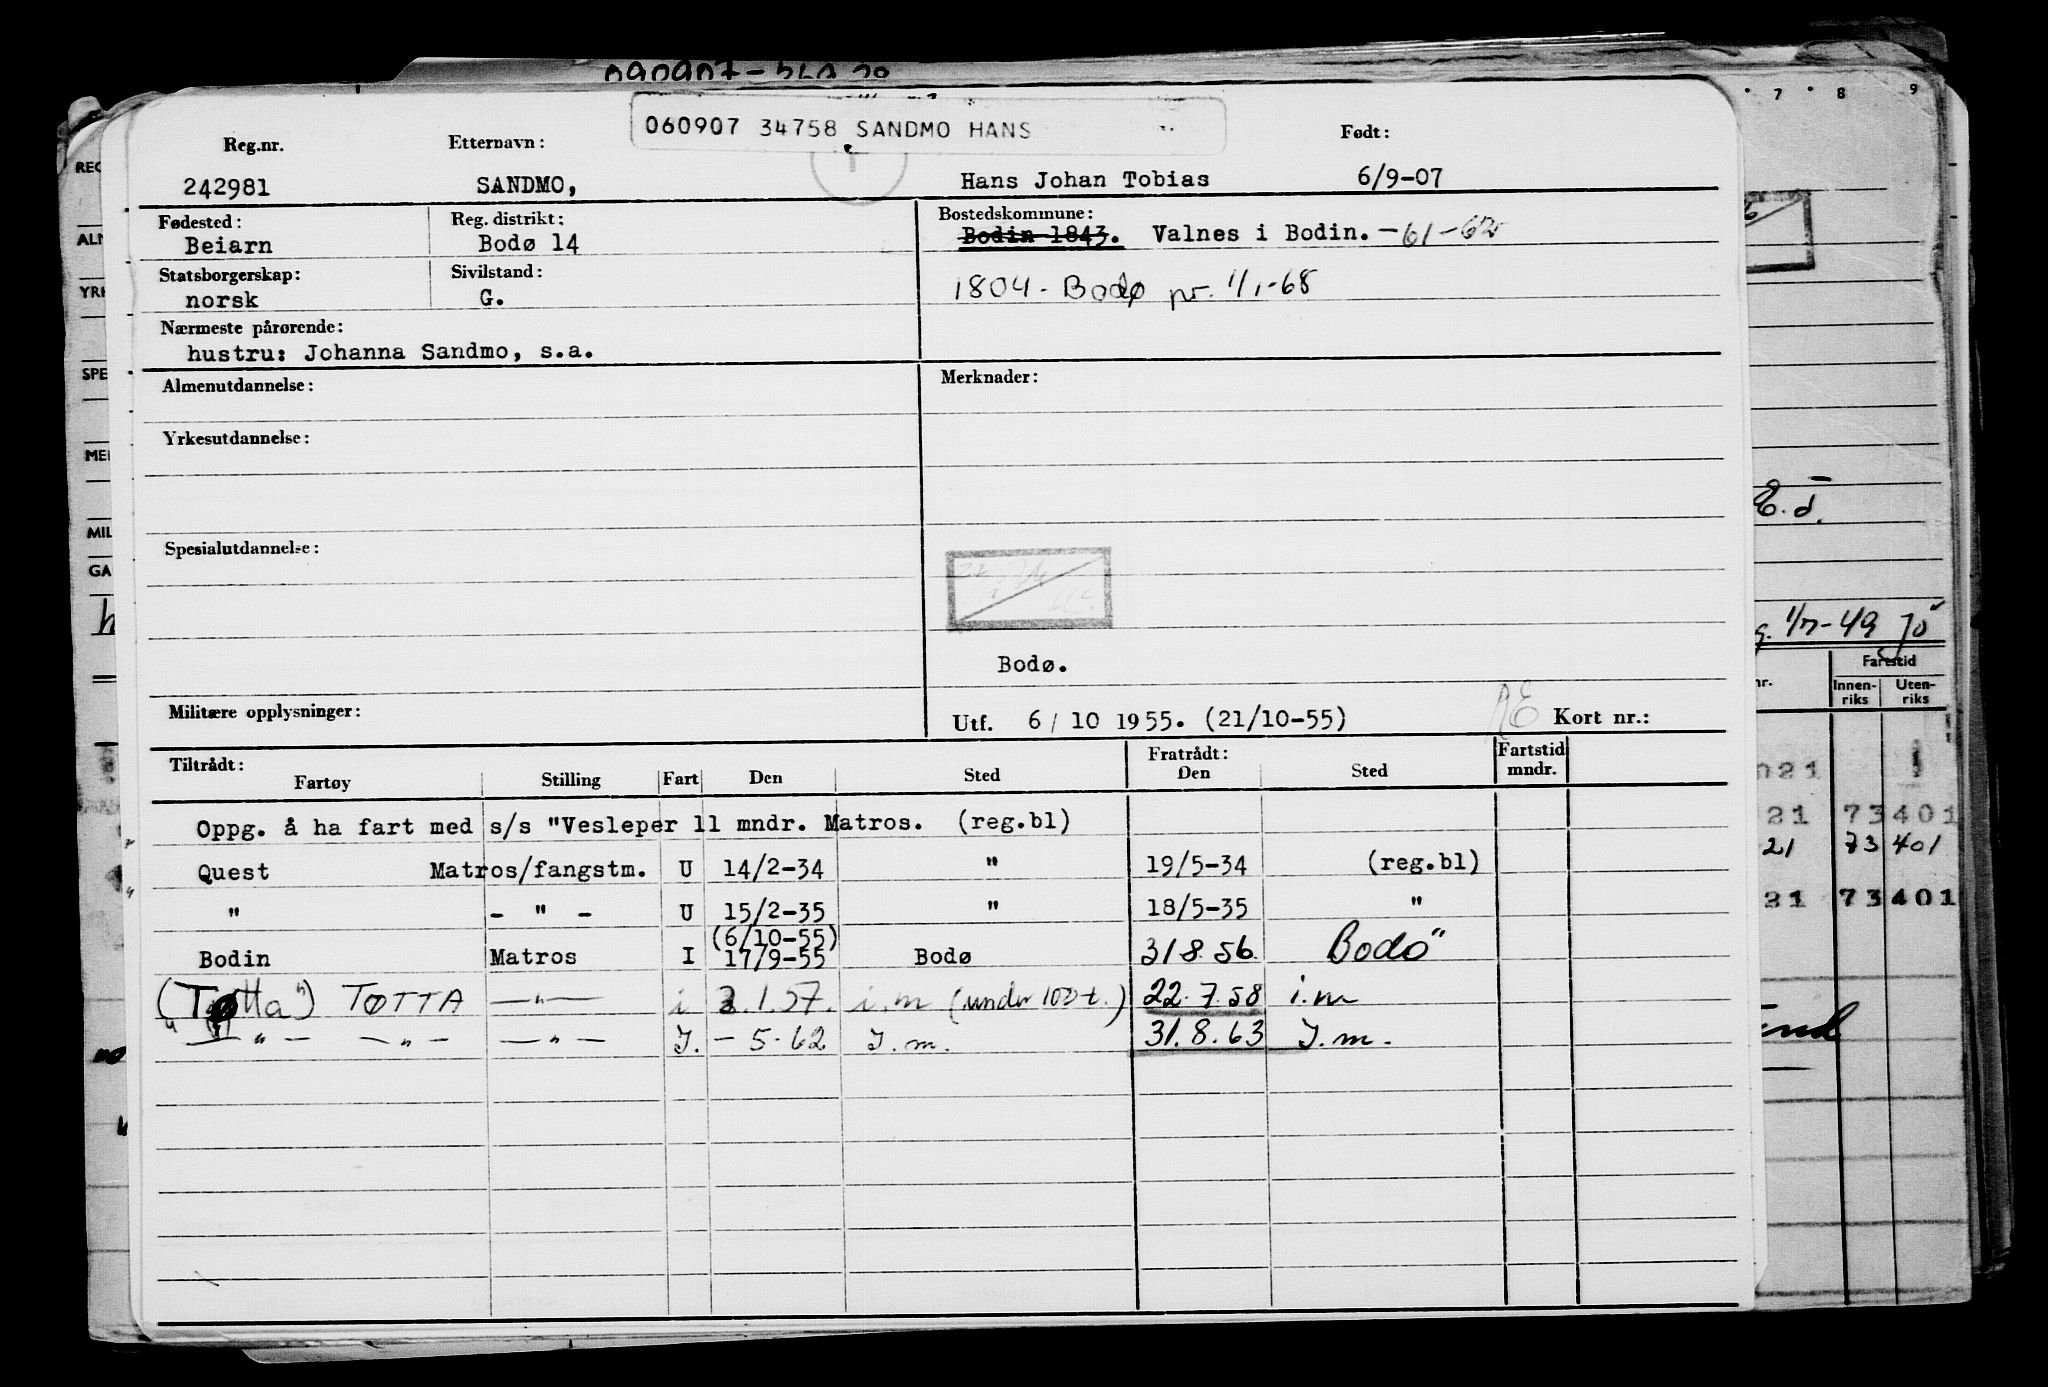 060907 34758 SANDMO HANS
Reg.nr. Etternavn: Født:
242981 SANDMO, Hans Johan Tobias 6/9-07
Fødested: Reg. distrikt: Bostedskommune:
Beiarn Bodø 14 Bodin 1843. Valnes i Bodin. -61-62
Statsborgerskap: Sivilstand:
norsk G. 1804 - Bodø pr. 1/1-68
Nærmeste pårørende:
hustru: Johanna Sandmo, s.a.
Almenutdannelse: Merknader:
Yrkesutdannelse:
Spesialutdannelse:
Bodø.
Militære opplysninger: Utf. 6/10 1955. (21/10-55) AE Kort nr.:
Tiltrådt: Fratrådt: Fartstid
Fartøy Stilling Fart Den Sted Den Sted mndr.
Oppg. å ha fart med s/s "Vesleper 11 mndr. Matros. (reg.bl)
Quest Matros/fangstm. U 14/2-34 " 19/5-34 (reg.bl)
" - " - U 15/2-35 " 18/5-35 "
(6/10-55)
Bodin Matros I 17/9-55 Bodø 31.8.56. Bodø"
("Tøtta") TØTTA —"— i 2.1.57. i.m (under 100 t.) 22.7.58 i.m
—"— —"— —"— I. - 5-62 I.m. 31.8.63 I.m.
7 8 9
REG
ALM
YRK
SPE
MER
MIL
GA
E.d.
1/7-49 Jo
Fartstid
nr. Innen-riks Uten-riks
021 1
21 73 401
21 73 401
21 73 401